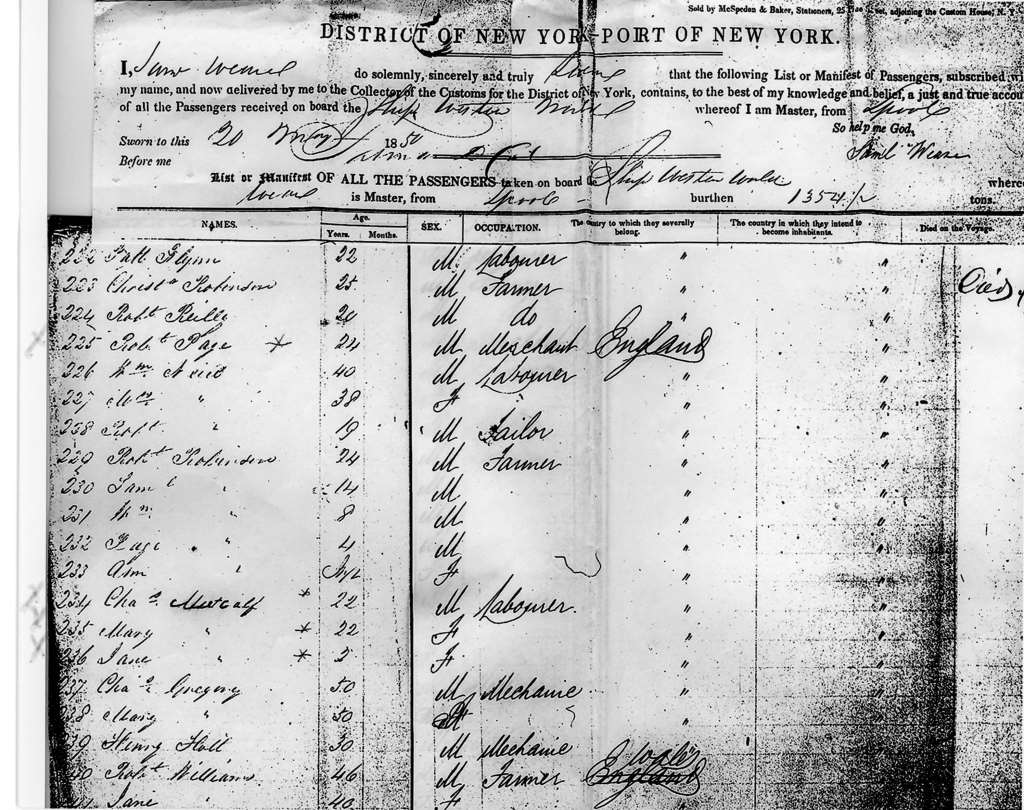 Sold by McSpedon & Baker, Stationers, 25 adjoining the Custom House, N. Y.
DISTRICT OF NEW YORK-PORT OF NEW YORK.
I, do solemnly, sincerely and truly that the following List or Manifest of Passengers, subscribed
my name, and now delivered by me to the Collector of the Customs for the District of New York, contains, to the best of my knowledge and belief, a just and true
of all the Passengers received on board the Ship Western World whereof I am Master, from
So help me God,
Sworn to this 20 May 1850 Saml Weare
Before me
List or Manifest OF ALL THE PASSENGERS taken on board Ship Western World where
is Master, from burthen 1354 1/2 tons.
NAMES. Age. SEX. OCCUPATION. The country to which they severally belong. The country in which they intend to become inhabitants. Died on the Voyage.
Years. Months.
222 Patt Flynn 22 M Labourer " "
223 Robinson 25 M Farmer " " Died
224 Robt 20 M do " "
225 Robt Page * 24 M Merchant England "
226 Wm 40 M Labourer " "
227 Mrs " 38 F " "
228 Robt " 19 M Tailor " "
229 Robt Robinson 24 M Farmer " "
230 Saml " 14 M " "
231 Wm " 8 M " "
232 Page " 4 M " "
233 Ann " F " "
234 Chas Metcalf * 22 M Labourer. " "
235 Mary " * 22 F " "
236 Jane " * 5 F " "
237 Chas Gregory 50 M Mechanic " "
38 Mary " 50 " "
39 Henry Holl 30 M Mechanic " "
40 Robt Williams 46 M Farmer England Wales "
Jane " 40 F